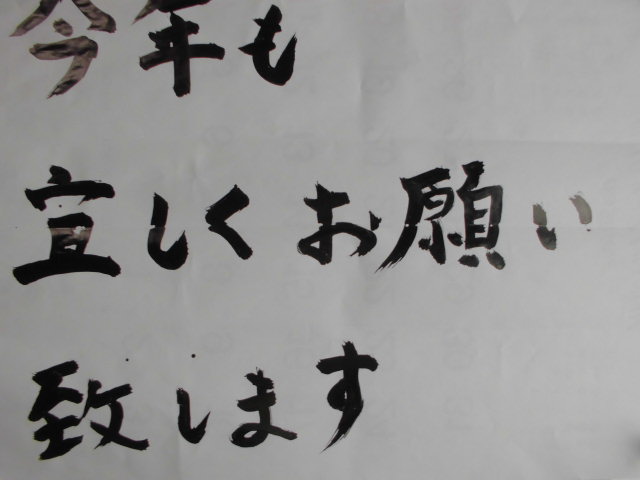 今年も
宜しくお願い
致します